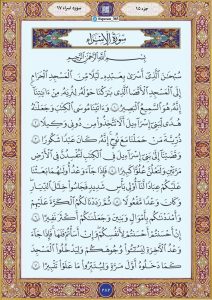 سوره اسراء ۱۷
جزء ۱۵
سُورَةُ الإِسْرَاءِ
بِسْمِ ٱللَّهِ ٱلرَّحْمَٰنِ ٱلرَّحِيمِ
سُبْحَٰنَ ٱلَّذِىٓ أَسْرَىٰ بِعَبْدِهِۦ لَيْلًا مِّنَ ٱلْمَسْجِدِ ٱلْحَرَامِ
إِلَى ٱلْمَسْجِدِ ٱلْأَقْصَا ٱلَّذِى بَٰرَكْنَا حَوْلَهُۥ لِنُرِيَهُۥ مِنْ ءَايَٰتِنَآ
إِنَّهُۥ هُوَ ٱلسَّمِيعُ ٱلْبَصِيرُ ١ وَءَاتَيْنَا مُوسَى ٱلْكِتَٰبَ وَجَعَلْنَٰهُ
هُدًى لِّبَنِىٓ إِسْرَٰٓءِيلَ أَلَّا تَتَّخِذُوا۟ مِن دُونِى وَكِيلًا ٢
ذُرِّيَّةَ مَنْ حَمَلْنَا مَعَ نُوحٍ إِنَّهُۥ كَانَ عَبْدًا شَكُورًا ٣
وَقَضَيْنَآ إِلَىٰ بَنِىٓ إِسْرَٰٓءِيلَ فِى ٱلْكِتَٰبِ لَتُفْسِدُنَّ فِى ٱلْأَرْضِ
مَرَّتَيْنِ وَلَتَعْلُنَّ عُلُوًّا كَبِيرًا ٤ فَإِذَا جَآءَ وَعْدُ أُولَىٰهُمَا بَعَثْنَا
عَلَيْكُمْ عِبَادًا لَّنَآ أُو۟لِى بَأْسٍ شَدِيدٍ فَجَاسُوا۟ خِلَٰلَ ٱلدِّيَارِ
وَكَانَ وَعْدًا مَّفْعُولًا ٥ ثُمَّ رَدَدْنَا لَكُمُ ٱلْكَرَّةَ عَلَيْهِمْ
وَأَمْدَدْنَٰكُم بِأَمْوَٰلٍ وَبَنِينَ وَجَعَلْنَٰكُمْ أَكْثَرَ نَفِيرًا ٦
إِنْ أَحْسَنتُمْ أَحْسَنتُمْ لِأَنفُسِكُمْ وَإِنْ أَسَأْتُمْ فَلَهَا فَإِذَا جَآءَ
وَعْدُ ٱلْءَاخِرَةِ لِيَسُۥٓـُٔوا۟ وُجُوهَكُمْ وَلِيَدْخُلُوا۟ ٱلْمَسْجِدَ
كَمَا دَخَلُوهُ أَوَّلَ مَرَّةٍ وَلِيُتَبِّرُوا۟ مَا عَلَوْا۟ تَتْبِيرًا ٧
۲۸۲